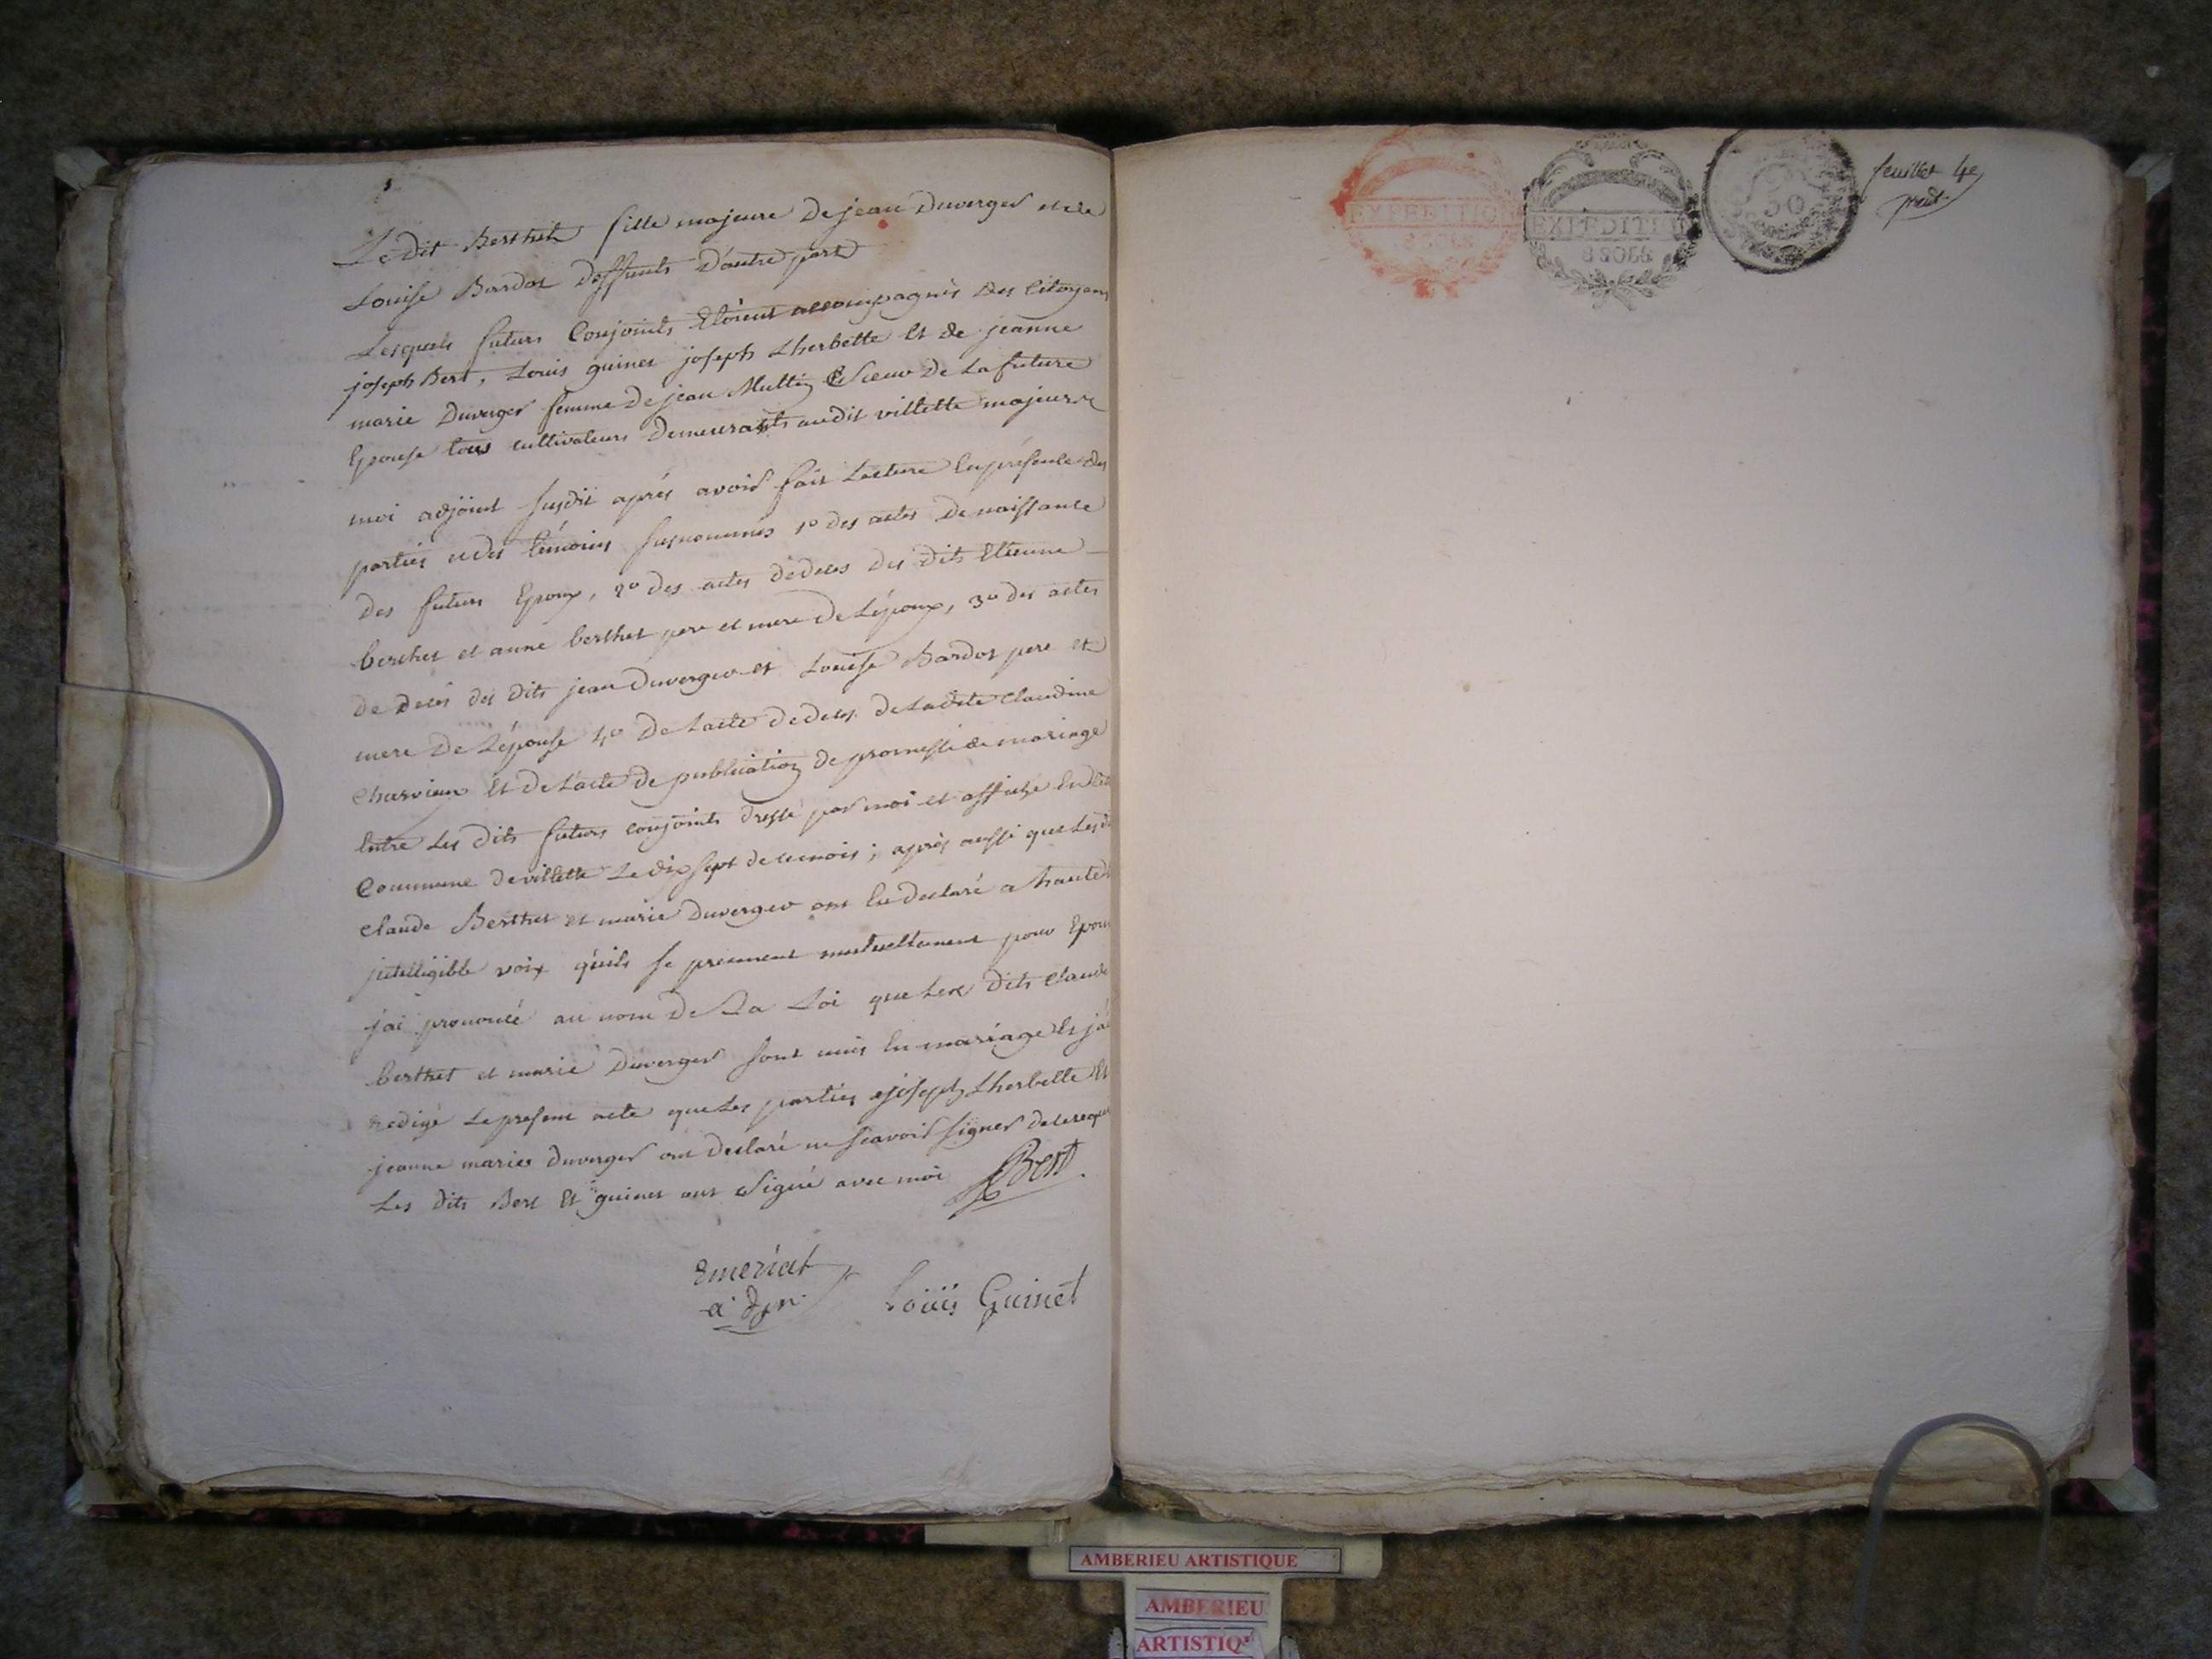 Ledit Berthet fille majeure de jean Duverger et de
Louise Bardot deffunts d'autre part
Lesquels futurs Conjoints Etoient accompagnés des Citoyens
joseph Bert, Louis guinet joseph Lherbette Et de jeanne
marie Duverger femme de jean Muttin Soeur de La future
Epouse tous cultivateurs demeurants audit villette majeurs
moi adjoint susdit aprés avoir fait Lecture En présence des
parties et des témoins susnommés 1º des actes de naissance
des futurs Epoux, 2º des actes dedeces des dits Etienne
berthet et anne berthet pere et mere de L'époux, 3º des actes
de decés des dits jean Duverger et Louise Bardot pere et
mere de L'épouse 4º de L'acte dedeces de Ladite claudine
charvieux Et de L'acte de publication de promesse de mariage
Entre Les dits futurs conjoints dressé par moi et affiché En
Commune de villette Le dix sept de ce mois; aprés aussi que
claude Berthet et marie Duverger ont Eu declaré a haute
jntelligible voix qu'ils se prennent mutuellement pour Epoux
j'ai prononcé au nom de La Loi que Les dits claude
berthet et marie Duverger sont unis En mariage Et j'ai
redigé Le present acte que Les parties joseph Lherbette Et
jeanne marie Duverger ont declaré ne scavoir signer de ce requis
Les dits Bert Et guinet ont Signé avec moi
Bert
Emeriat
Loüis Guinet
EXPEDITION
8 SOLS
EXPEDITION
8 SOLS
50
feuillet 4e
AMBERIEU ARTISTIQUE
AMBERIEU
ARTISTIQ